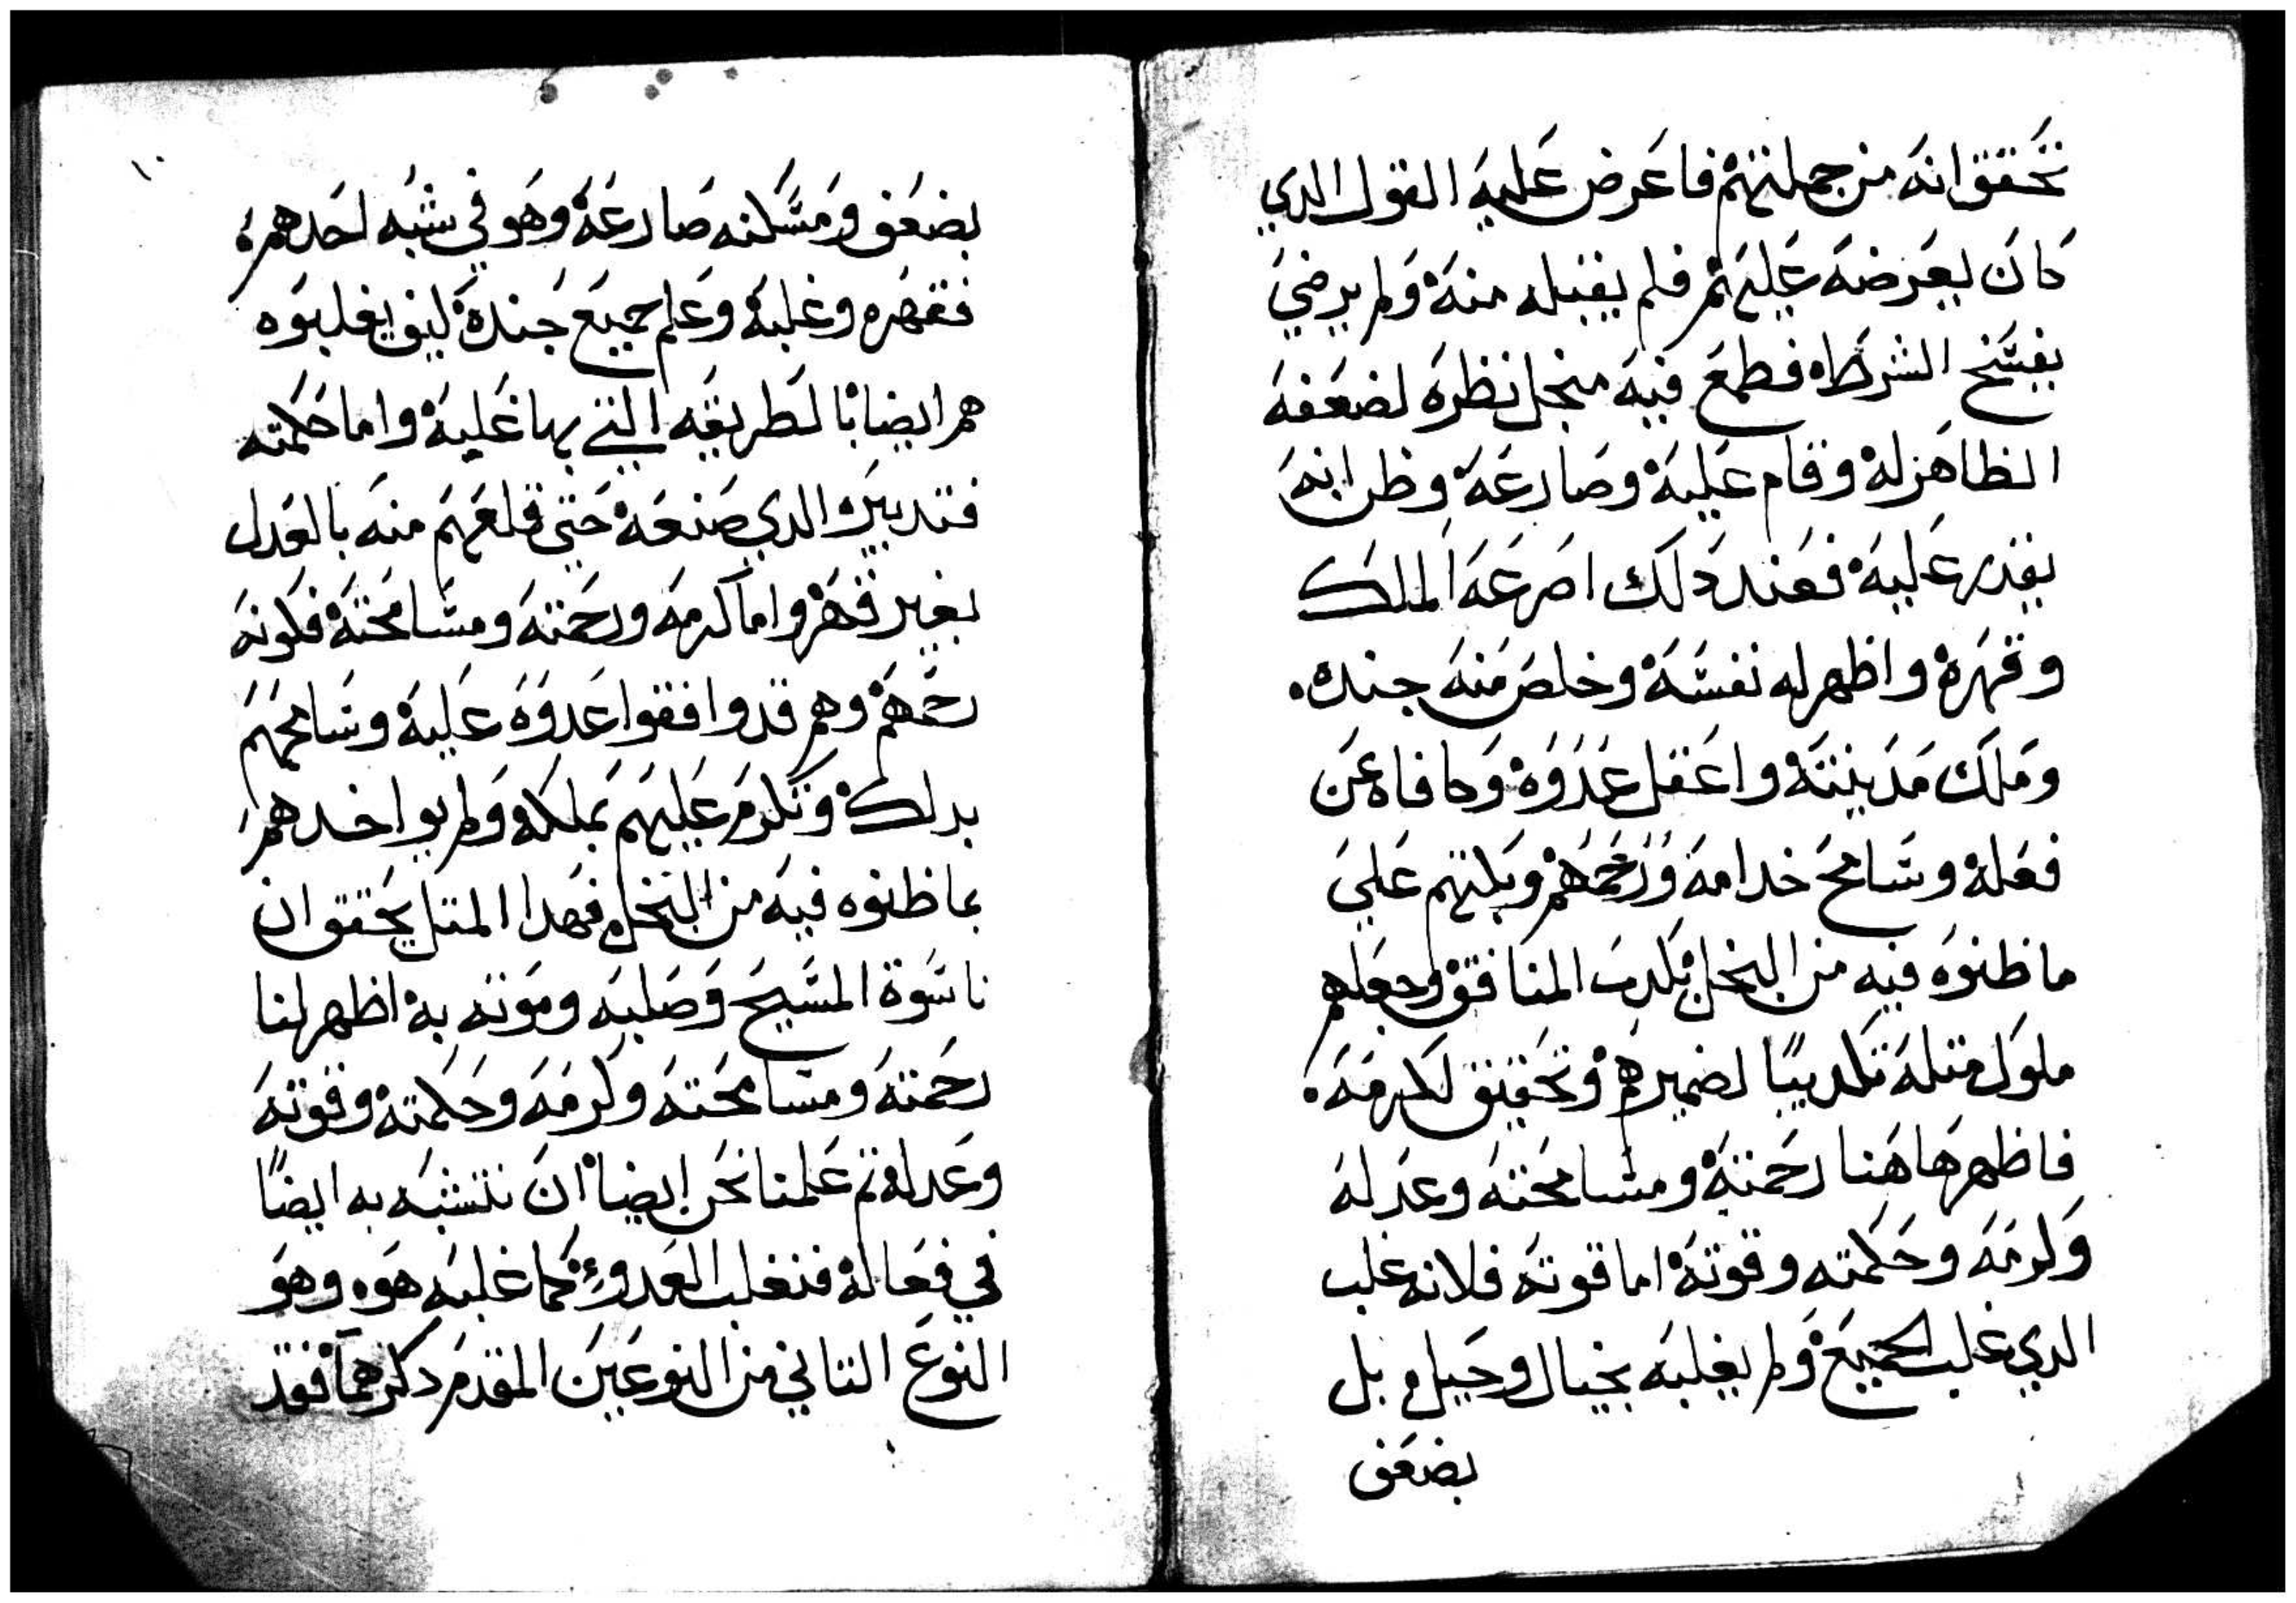 تحقق انه من جملتهم فاعرض عليه القول الدي
كان يعرضه عليهم فلم يقبله منه ولم يرضي
يفسخ الشرطه فطمع فيه منجل نظره لضعفه
الظاهر له وقام عليه وصارعه وظن انه
يقدر عليه فعند دلك اصرعه الملك
وقهره واظهر له نفسه وخلص منه جنده.
وملك مدينته واعقل عدوه وكافاه عن
فعله وسامح خدامه ورحمهم وبكتهم علي
ما ظنوه فيه من البخل بكدب المنافق وجعلهم
ملوك متله تكديبًا لضميرهم وتحقيق لكرمه.
فاظهر هاهنا رحمته ومسامحته وعدله
وكرمه وحكمته وقوته اما قوته فلانه غلب
الدي غلب الجميع ولم يغلبه بخيال وحيل بل
بضعف
١٠
بضعف ومسكنه صارعه وهو في شبه احدهم
فقهره وغلبه وعلم جميع جنده كيف يغلبوه
هم ايضا بالطريقه التي بها غلبه واما حكمته
فتدبيره الدي صنعه حتي قلعهم منه بالعدل
بغير قهر واما كرمه ورحمته ومسامحته فكونه
رحمهم وهم قد وافقوا عدوه عليه وسامحهم
بدلك وتكرم عليهم بملكه ولم يواخدهم
بما ظنوه فيه من البخل فهدا المتل يحقق ان
ناسوة المسيح وصلبه وموته به اظهر لنا
رحمته ومسامحته وكرمه وحكمته وقوته
وعدله تم علمنا نحن ايضا ان نتشبه به ايضًا
في فعاله فنغلب العدو كما غلبه هوه وهو
النوع التاني من النوعين المقدم دكرهما فقد